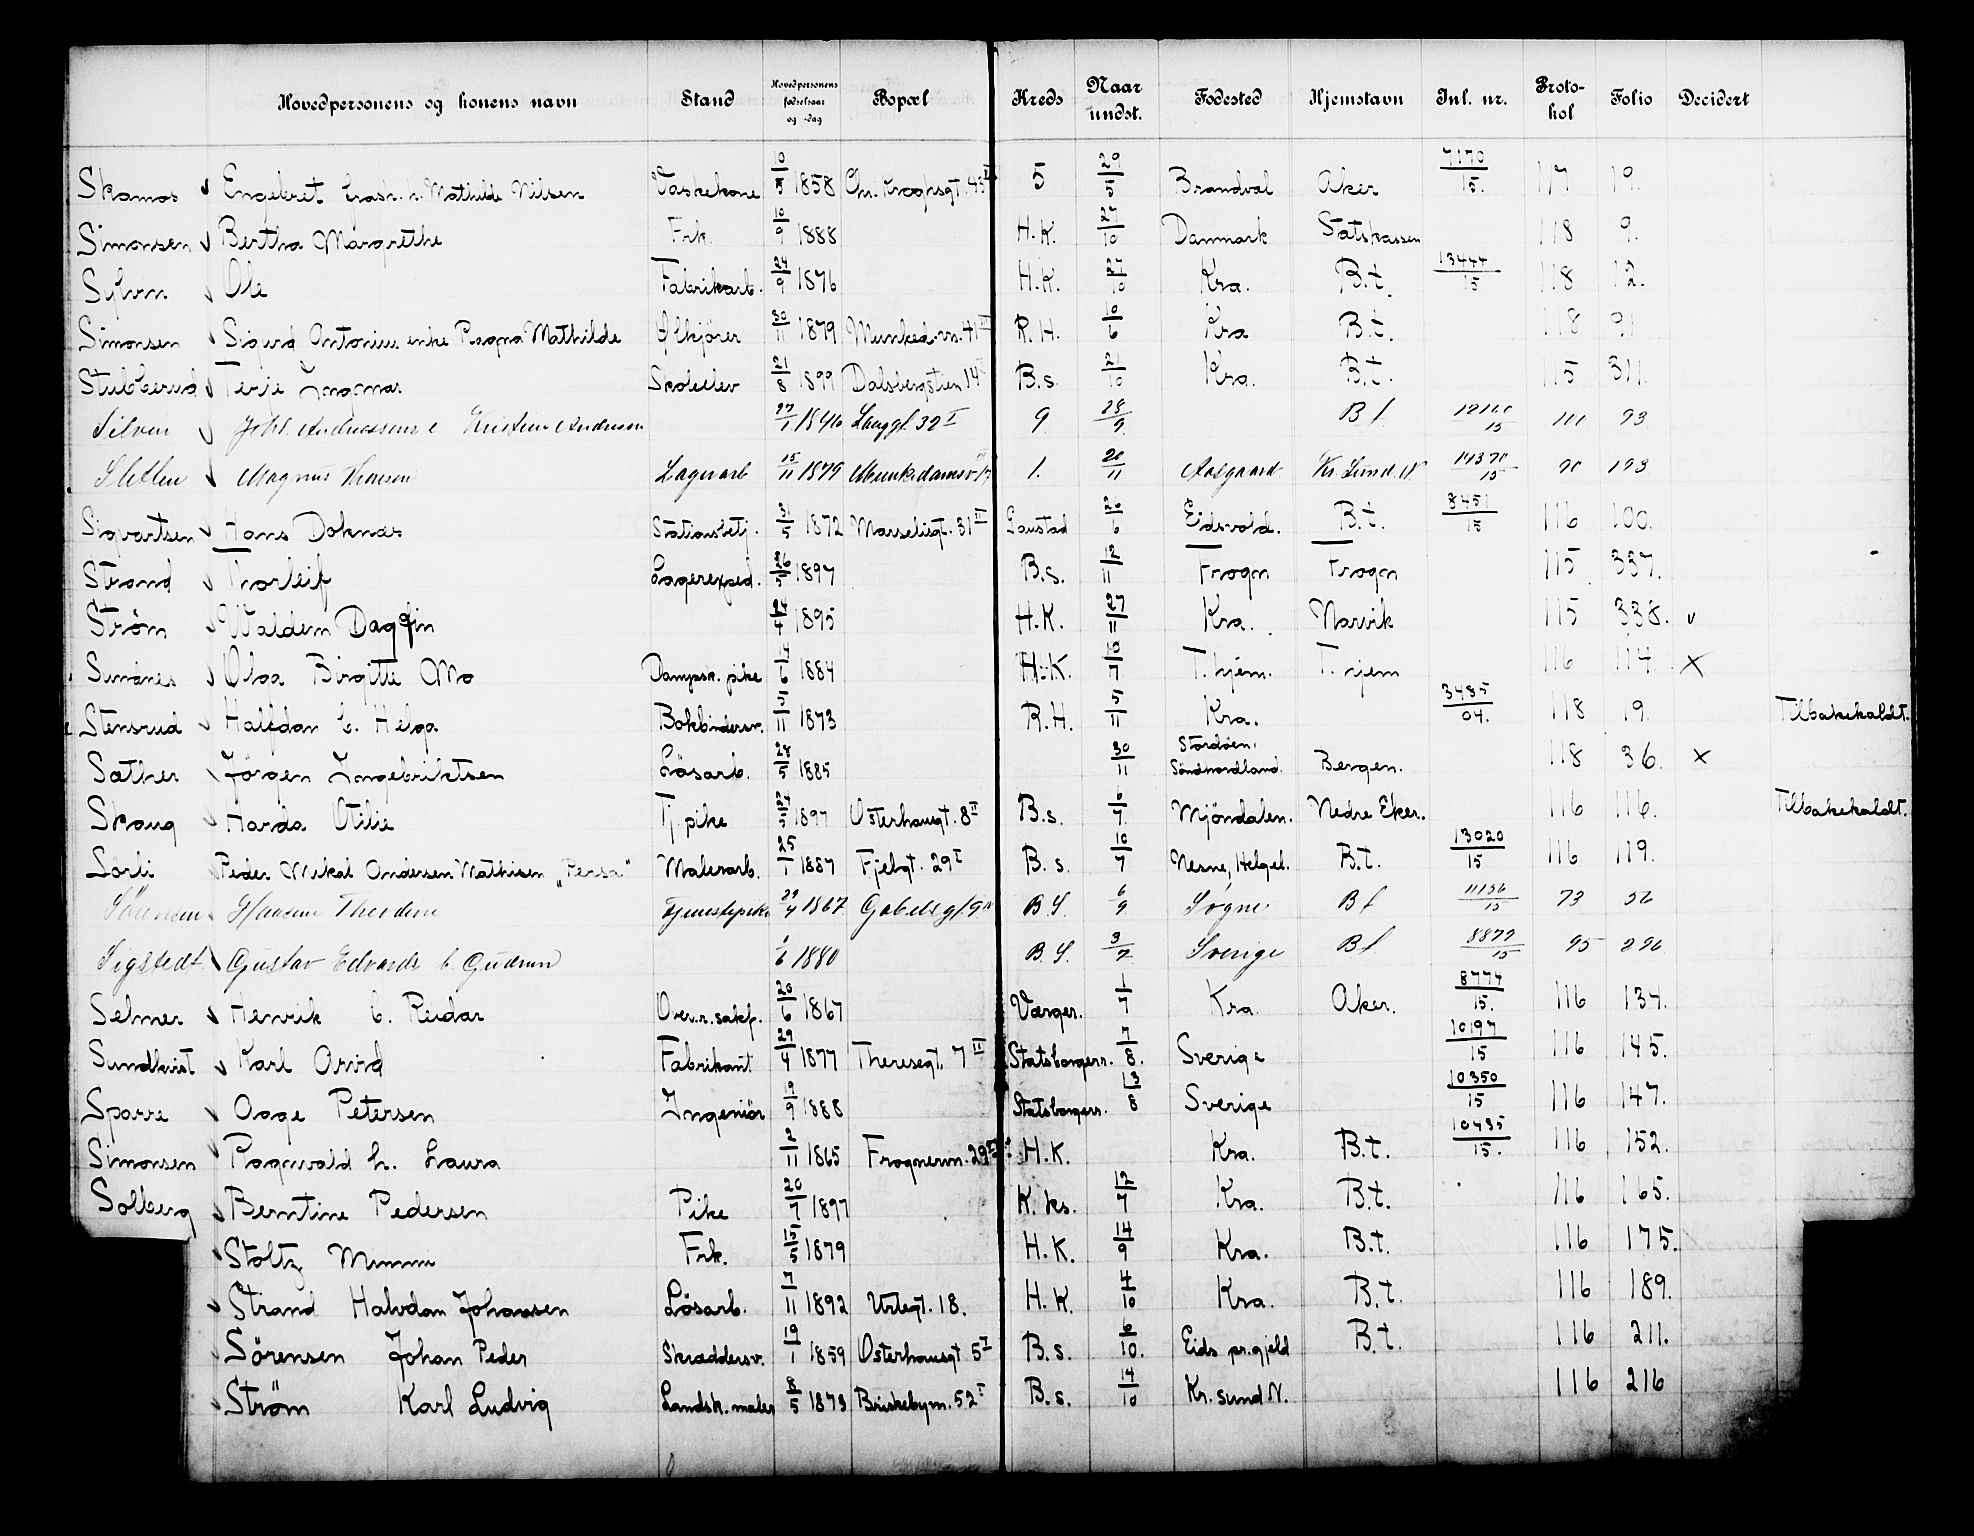 Hovedpersonens og konens navn Stand Hovedpersonens fødselsaar og -dag Bopæl Kreds Naar undst. Fødested Hjemstavn Inl. nr. Proto-kol Folio Decidert
Skamos Engebret Mathilde Nilsen Vaskekone 10/5 1858 Chr. Kroghsgt. 45 5 29/5 Brandval Aker 7170/15. 117 19.
Simonsen Bertha Margrethe Frk. 10/9 1888 H.K. 27/10 Danmark Statskassen 118 9.
Sylvin Ole Fabrikarb. 24/9 1876 H.K. 27/10 Kra. B.t. 13444/15 118 12.
Simonsen Sigurd Antonius enke Ragna Mathilde Ølkjører 30/11 1879 Munked.vn. 41 III R.H. 10/6 Kra B.t. 118 91
Stubberud Terje Ingmar Skoleelev 21/8 1899 Dalsbergstien 14 B.s. 21/10 Kra. B.t. 115 311.
Silven Johs. Andreassen e Kristine Andersen 27/1 1846 Langgt. 32 I 9 28/9 B.t. 111 93
Sletten Magnus Lagerarb 15/11 1879 Munkedamsv. 17 1. 20/11 Aasgaard Kr.sund N 14370/15 90 193
Sigvartsen Hans Doknes Stationsbetj. 31/5 1872 Marseliisgt. 31 III Gaustad 26/6 Eidsvold. B.t. 8451/15 116 100.
Strand Thorleif Lagerexped. 26/5 1897 B.s. 12/11 Frogn Frogn 115 337.
Strøm Waldem Dagfin 24/4 1895 H.K. 27/11 Kra. Narvik 115 338. v
Sundnes Olga Birgitte Mo Dampsk. pike 14/6 1884 H.K. 10/7 T.hjem. T.hjem 116 114. X
Stensrud Halfdan E. Helga Bokbindersv. 5/11 1873 R.H. 5/11 Kra. 3485/04. 118 19. Tilbakekaldt.
Sæther Jörgen Ingebriktsen Lösarb. 28/5 1885 30/11 Stordøen, Søndhordland. Bergen. 118 36. X
Skaug Harda Otilie Tj.pike 27/3 1897 Osterhausgt. 8 II B.s. 6/7 Mjöndalen. Nedre Eker. 116 116. Tilbakekaldt.
Sörli Peder Mikal Andersen Mathisen Malerarb. 25/1 1887 Fjeldgt. 29 I B.s. 10/7 Nesne, Helgel. B.t. 13020/15 116 119.
Sörensen Hansine Theodine Tjenestepike 29/4 1867 Gabelsgt. 9 B.S. 6/9 Sogne B.t. 11156/15 73 56
Sigstedt Gustav Edvards E. Gudrun 1/6 1880 B.S. 3/7 Sverige B.t. 8879/15 95 296
Selmer Henrik E. Reidar Over.r.sakf. 20/6 1867 Værger. 1/7 Kra. Aker. 8774/15. 116 134.
Sundkvist Karl Arvid Fabrikant 29/4 1877 Theresegt. 7 II Statsborgers. 7/8. Sverige 10197/15 116 145.
Sparre Aage Petersen Ingeniör 9/9 1888 Statsborgers. 13/8 Sverige 10350/15 116 147.
Simonsen Ragnvald h. Laura 2/11 1865 Frognervn. 29 H.K. Kra. B.t. 10435/15. 116 152.
Solberg Berntine Pedersen Pike 20/7 1897 K.ks. 12/7 Kra. B.t. 116 165.
Stoltz Mimmi Frk. 15/5 1879 H.K. 14/9 Kra. B.t. 116 175.
Strand Halvdan Johansen Lösarb. 7/11 1892 Urtegt. 18. H.K. 4/10 Kra. B.t. 116 189.
Sörensen Johan Peder Skræddersv. 19/1 1859 Osterhausgt. 5 I B.s. 6/10. Eids pr.gjeld B.t. 116 211.
Ström Karl Ludvig Landsk. maler 8/5 1873 Briskebyvn. 52 I B.s. 14/10 Kr.sund N. 116 216